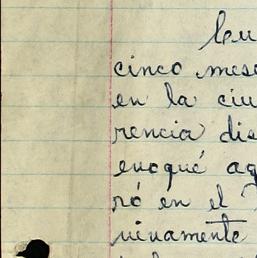 cinco mese
en la ciu
rencia dis
evoqué ag
ró en el
nuevamente